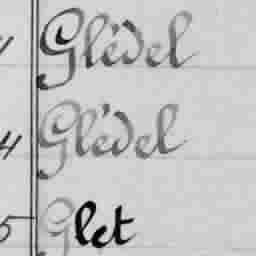 Glédel
4 Glédel
5 Glet